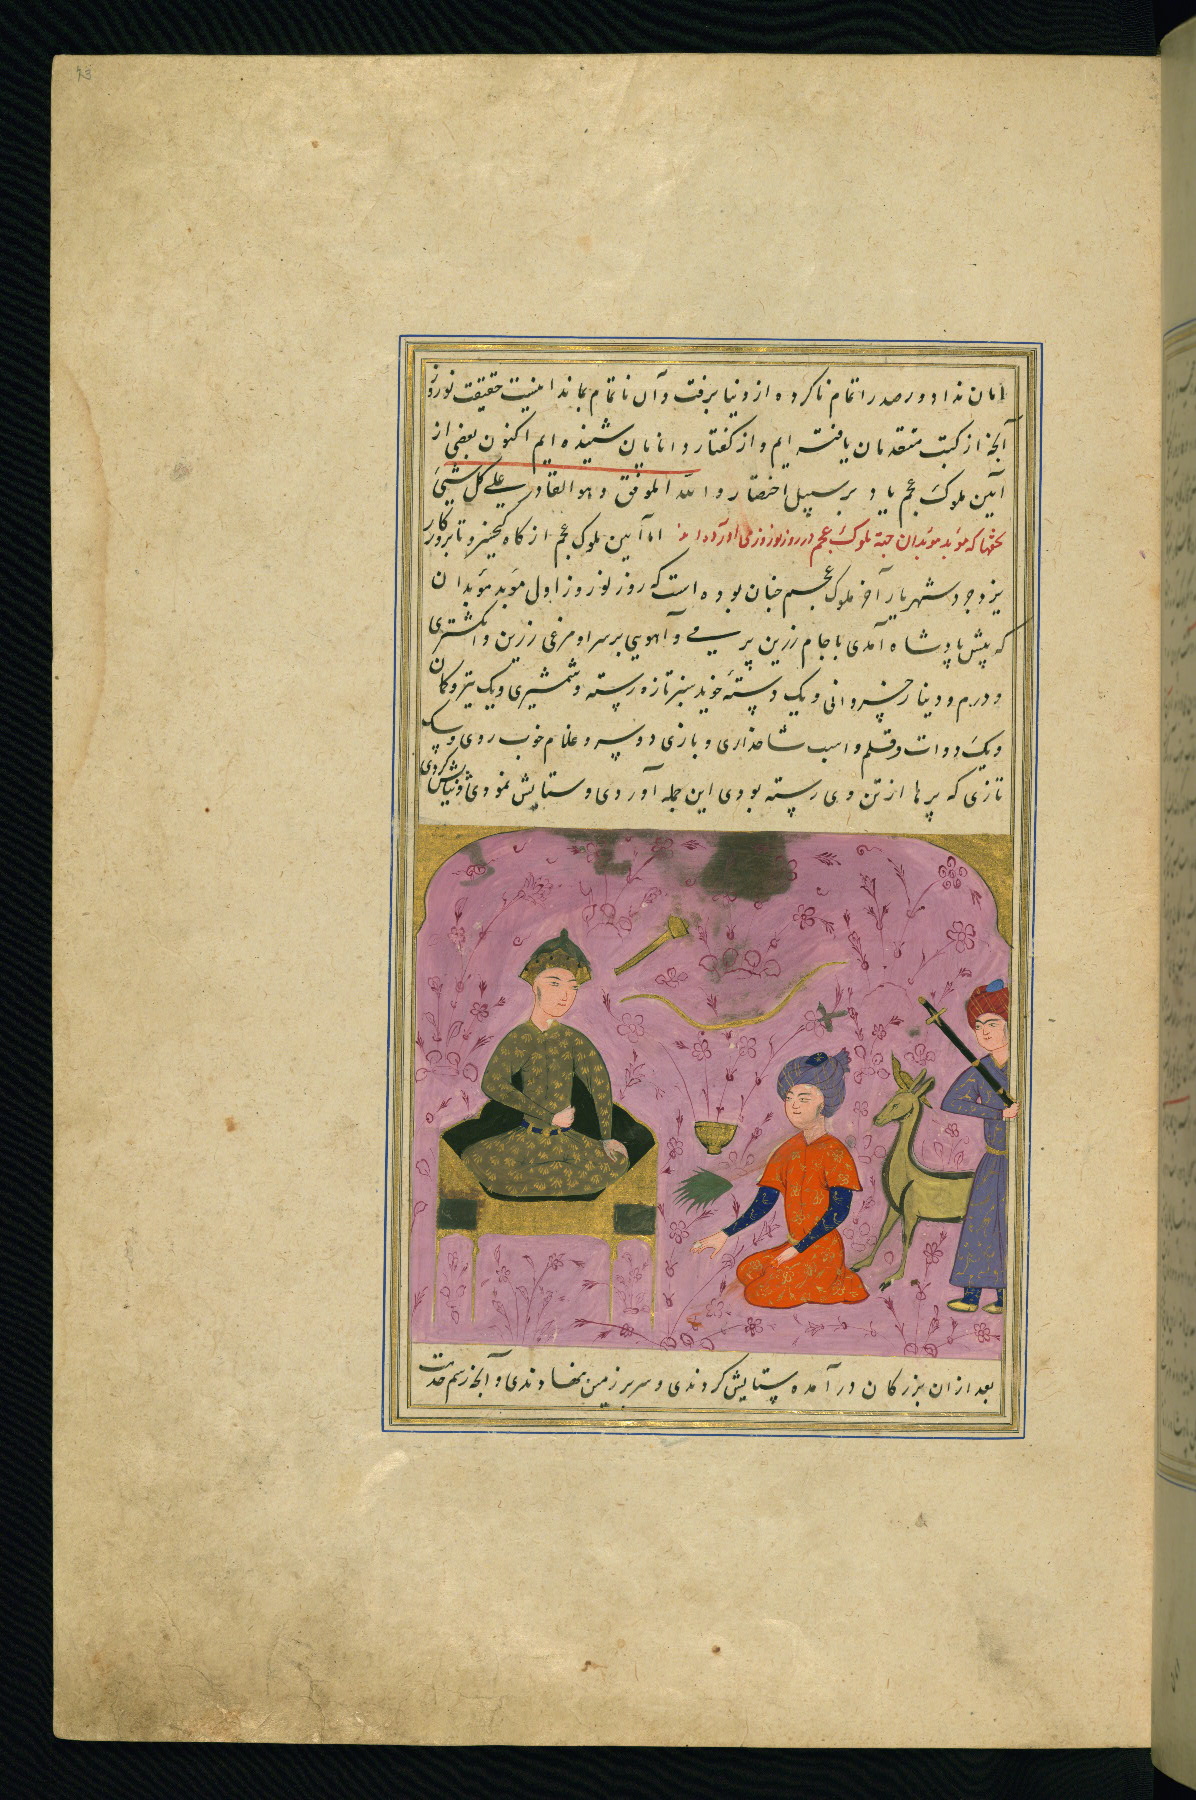 73
امان نداد و رصد را تمام ناکرده از دنیا برفت و آن ناتمام بماند اینست حقیقت نوروز
آنچه از کتب متقدمان یافته ایم و از گفتار دانایان شنیده ایم اکنون بعضی از
آیین ملوک عجم یاد بر سبیل اختصار و الله الموفق وهو القادر علی کل شیئ
تحفها که موبد موبدان جهة ملوک عجم در روز نوروز می آورده اند اما آیین ملوک عجم از گاه کیخسرو تا بروزکار
یزدجرد شهریار آخر ملوک عجم چنان بوده است که روز نوروز اول موبد موبدان
که پیش پادشاه آمدی با جام زرین پر می و آهویی بر سر او مرغی زرین و انگشتری
و درم و دینار خسروانی و یک دسته خوید سبز تازه رسته و شمشیری و یک تیر و کمان
و یک دوات و قلم و اسب شاهداری و بازی دوسپر و غلام خوب روی و سک
تازی که پرها از تن وی رسته بودی این جمله آوردی و ستایش نمودی و نیایش کردی
بعد از ان بزرکان در آمده ستایش کردندی و سر بر زمین نهادندی و آنچه رسم خدمت